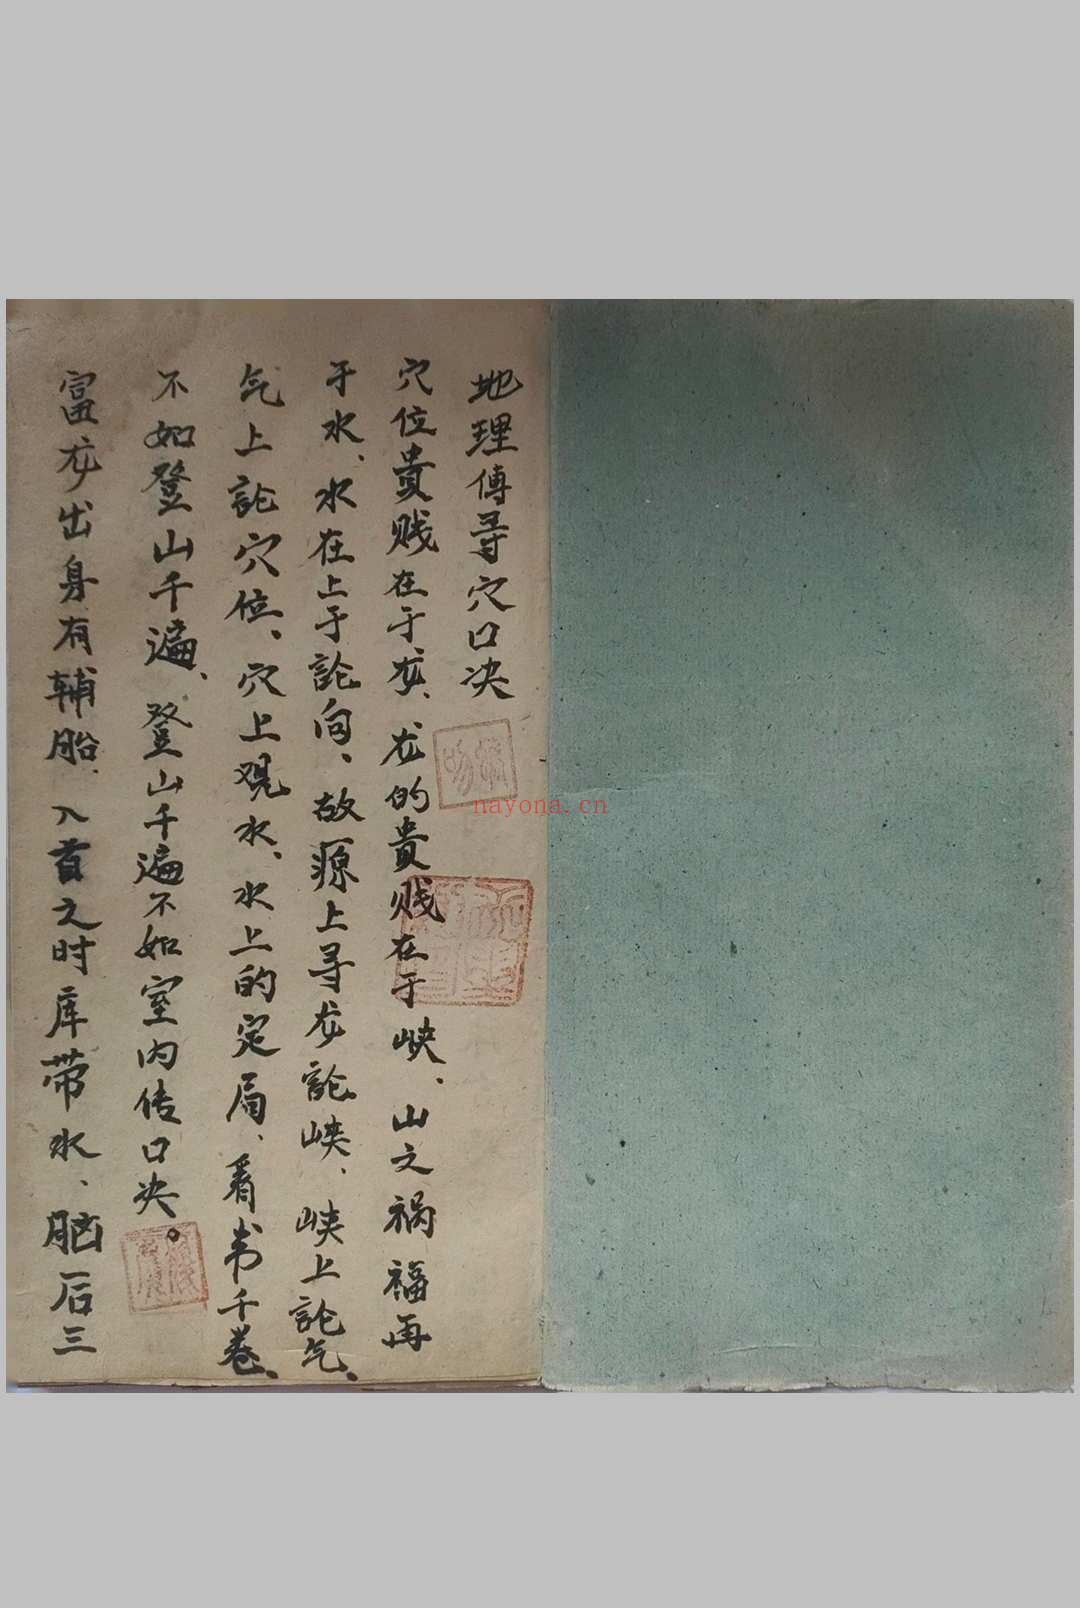 地理傳寻穴口决
穴位貴贱在于龙、龙的貴贱在于峡、山文祸福再
于水、水在上于論向、故源上寻龙論峡、峡上論气、
气上論穴位、穴上观水、水上的定局、看书千卷、
不如登山千遍、登山千遍不如室内传口决。
富龙出身有辅胎、入首之时库带水、脑后三
nayona.cn